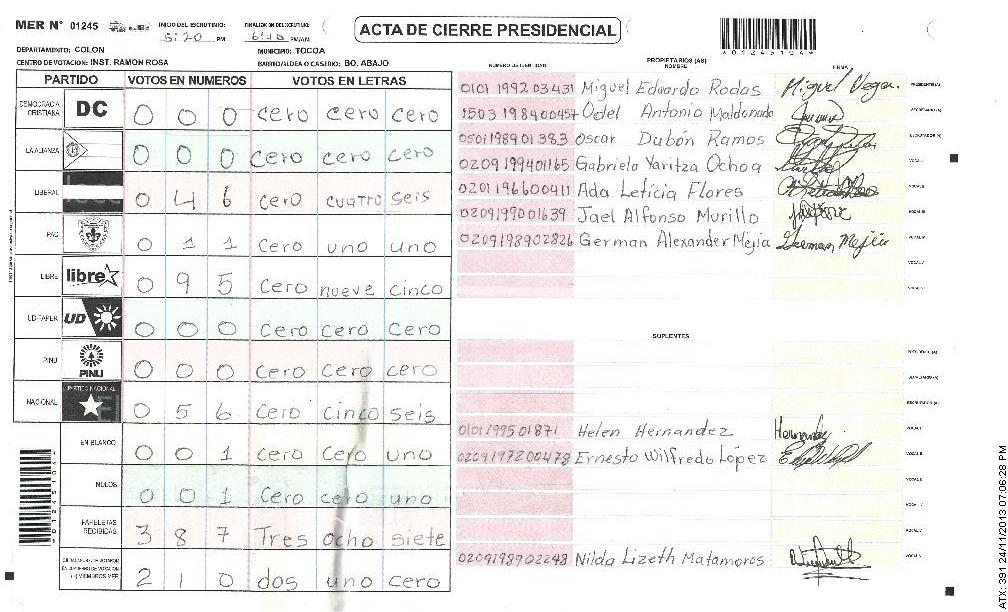 MER N° 01245
INICIO DEL ESCRUTINIO: 5:20 PM
FINALIZACION DEL ESCRUTINIO: 6:40 PM/AM
ACTA DE CIERRE PRESIDENCIAL
DEPARTAMENTO: COLON
MUNICIPIO: TOCOA
CENTRO DE VOTACION: INST. RAMON ROSA
BARRIO/ALDEA O CASERIO: BO. ABAJO
PARTIDO VOTOS EN NUMEROS VOTOS EN LETRAS
DEMOCRACIA CRISTIANA DC 0 0 0 cero cero cero
LA ALIANZA 0 0 0 cero cero cero
LIBERAL 0 4 6 cero cuatro seis
PAC 0 1 1 cero uno uno
LIBRE libre 0 9 5 cero nueve cinco
UD-FAPER UD 0 0 0 cero cero cero
PINU PINU 0 0 0 cero cero cero
NACIONAL PARTIDO NACIONAL 0 5 6 cero cinco seis
EN BLANCO 0 0 1 cero cero uno
NULOS 0 0 1 cero cero uno
PAPELETAS RECIBIDAS 3 8 7 Tres ocho siete
2 1 0 dos uno cero
NUMERO DE IDENTIDAD
PROPIETARIOS (AS)
NOMBRE
FIRMA
0101 1992 03431 Miguel Eduardo Rodas PRESIDENTE (A)
1503 1984 00457 Odel Antonio Maldonado SECRETARIO (A)
0501198901383 Oscar Dubón Ramos ESCRUTADOR (A)
0209199401165 Gabriela Yaritza Ochoa VOCAL I
0201 196600411 Ada Leticia Flores VOCAL II
0209199001639 Jael Alfonso Murillo VOCAL III
0209198902826 German Alexander Mejia German Mejia VOCAL IV
VOCAL V
SUPLENTES
PRESIDENTE (A)
SECRETARIO (A)
ESCRUTADOR (A)
0101199501871 Helen Hernandez Hernandez VOCAL I
0209197200478 Ernesto Wilfredo Lopez VOCAL II
0209198902248 Nilda Lizeth Matamoros
ATX: 391 24/11/2013 07:06:28 PM